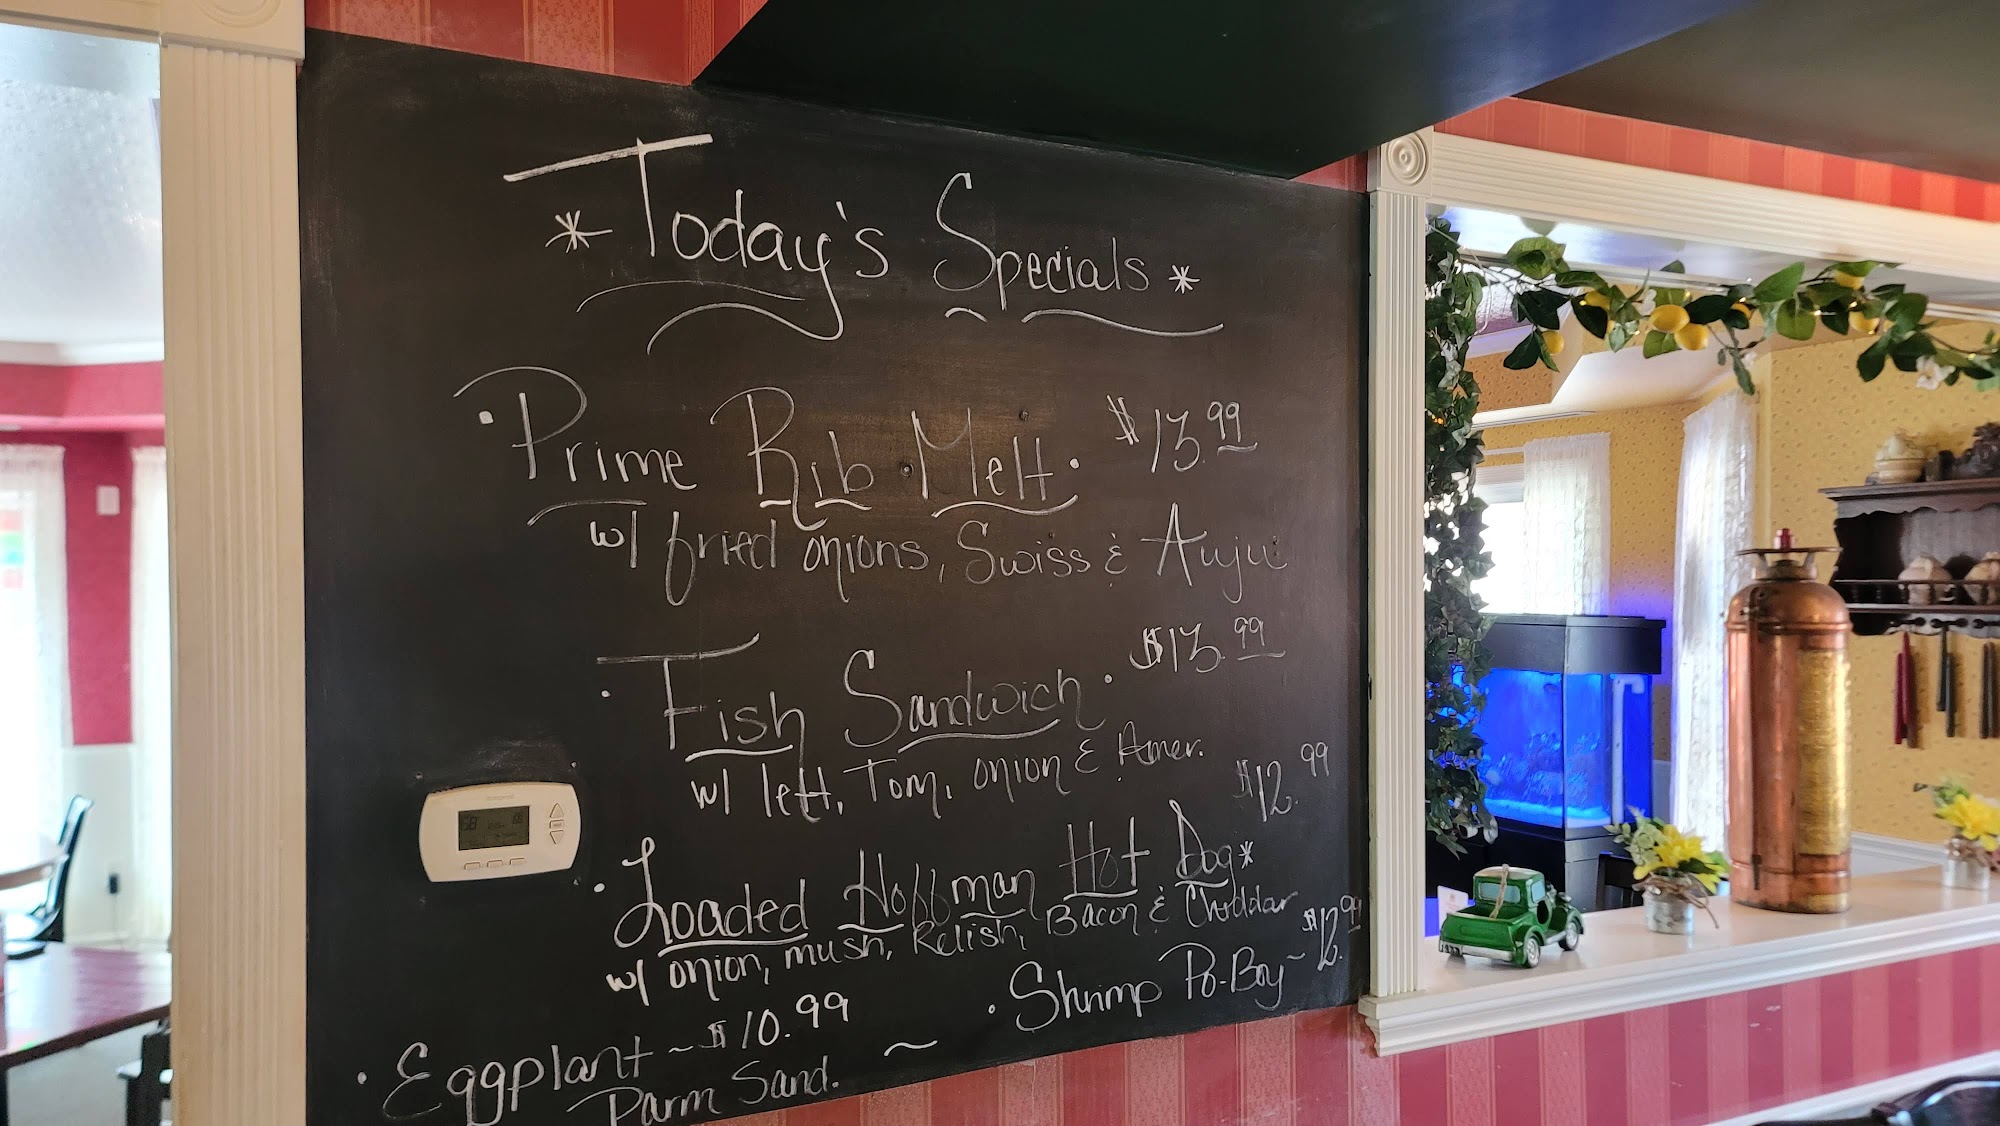 *Today's Specials*
·Prime Rib Melt· $13.99
w/ fried onions, Swiss & Auju
·Fish Sandwich· $13.99
w/ lett, Tom, onion & Amer.
·Loaded Hoffman Hot Dog* $12.99
w/ onion, mush, Relish, Bacon & Cheddar
·Shrimp Po-Boy~ $12.99
·Eggplant ~ $10.99
Parm Sand.